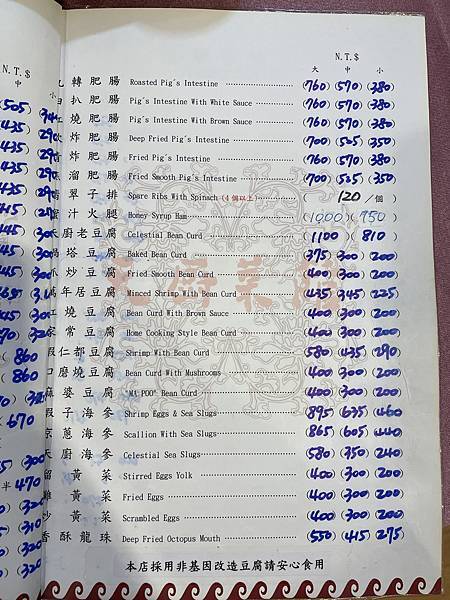 N.T.$
中 小
(505)
(435) 290
(435) 290
(435) 290
(435) 290
(445)
(300
(300
(300
860
(860
(670
半 470
N.T.$
大 中 小
轉肥腸 Roasted Pig's Intestine (760) (570) (380)
扒肥腸 Pig's Intestine With White Sauce (760) (570) (380)
燒肥腸 Pig's Intestine With Brown Sauce (760) (570) (380)
炸肥腸 Deep Fried Pig's Intestine (700) (505) (350)
炸肥腸 Fried Pig's Intestine (760) (570) (380)
溜肥腸 Fried Smooth Pig's Intestine (700) (505) (350)
翠子排 Spare Ribs With Spinach (4個以上) ( 120/個 )
蜜汁火腿 Honey Syrup Ham (1000) (750)
天廚老豆腐 Celestial Bean Curd (1100 810
塌豆腐 Baked Bean Curd 375 (300) (200)
炒豆腐 Fried Smooth Bean Curd (400) (300) (200)
萬年居豆腐 Minced Shrimp With Bean Curd (445) 345 (225)
紅燒豆腐 Bean Curd With Brown Sauce (400) (300) (200)
家常豆腐 Home Cooking Style Bean Curd (400) (300) (200)
蝦仁都豆腐 Shrimp With Bean Curd (580) (435) (290)
口磨燒豆腐 Bean Curd With Mushrooms (400) (300) (200)
麻婆豆腐 "MA POO" Bean Curd (400) (300) (200)
蝦子海參 Shrimp Eggs & Sea Slugs (895) (635) (460)
京蔥海參 Scallion With Sea Slugs (865) (605) (440)
天廚海參 Celestial Sea Slugs (580) (350) (240)
溜黃菜 Stirred Eggs Yolk (400) (300) (200)
攤黃菜 Fried Eggs (400) (300) (200)
炒黃菜 Scrambled Eggs (400) (300) (200)
香酥龍珠 Deep Fried Octopus Mouth (550) (415) (275)
本店採用非基因改造豆腐請安心食用